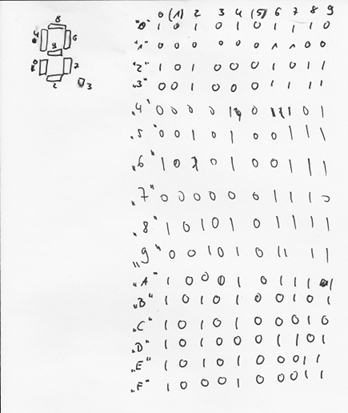 0 (1) 2 3 4 (5) 6 7 8 9
"0" 1 0 1 0 1 0 1 1 1 0
"1" 0 0 0 0 0 0 1 1 0 0
"2" 1 0 1 0 0 0 0 1 0 1 1
"3" 0 0 1 0 0 0 1 1 1 1
"4" 0 0 0 0 1 0 1 1 0 1
"5" 0 0 1 0 1 0 0 1 1 1
"6" 1 0 1 0 1 0 0 1 1 1
"7" 0 0 0 0 0 0 1 1 1 0
"8" 1 0 1 0 1 0 1 1 1 1
"9" 0 0 1 0 1 0 1 1 1 1
"A" 1 0 0 0 1 0 1 1 1 1
"B" 1 0 1 0 1 0 0 1 0 1
"C" 1 0 1 0 1 0 0 0 1 0
"D" 1 0 1 0 0 0 1 1 0 1
"E" 1 0 1 0 1 0 0 0 1 1
"F" 1 0 0 0 1 0 0 0 1 1
8
4 6
9
0 7
2 3